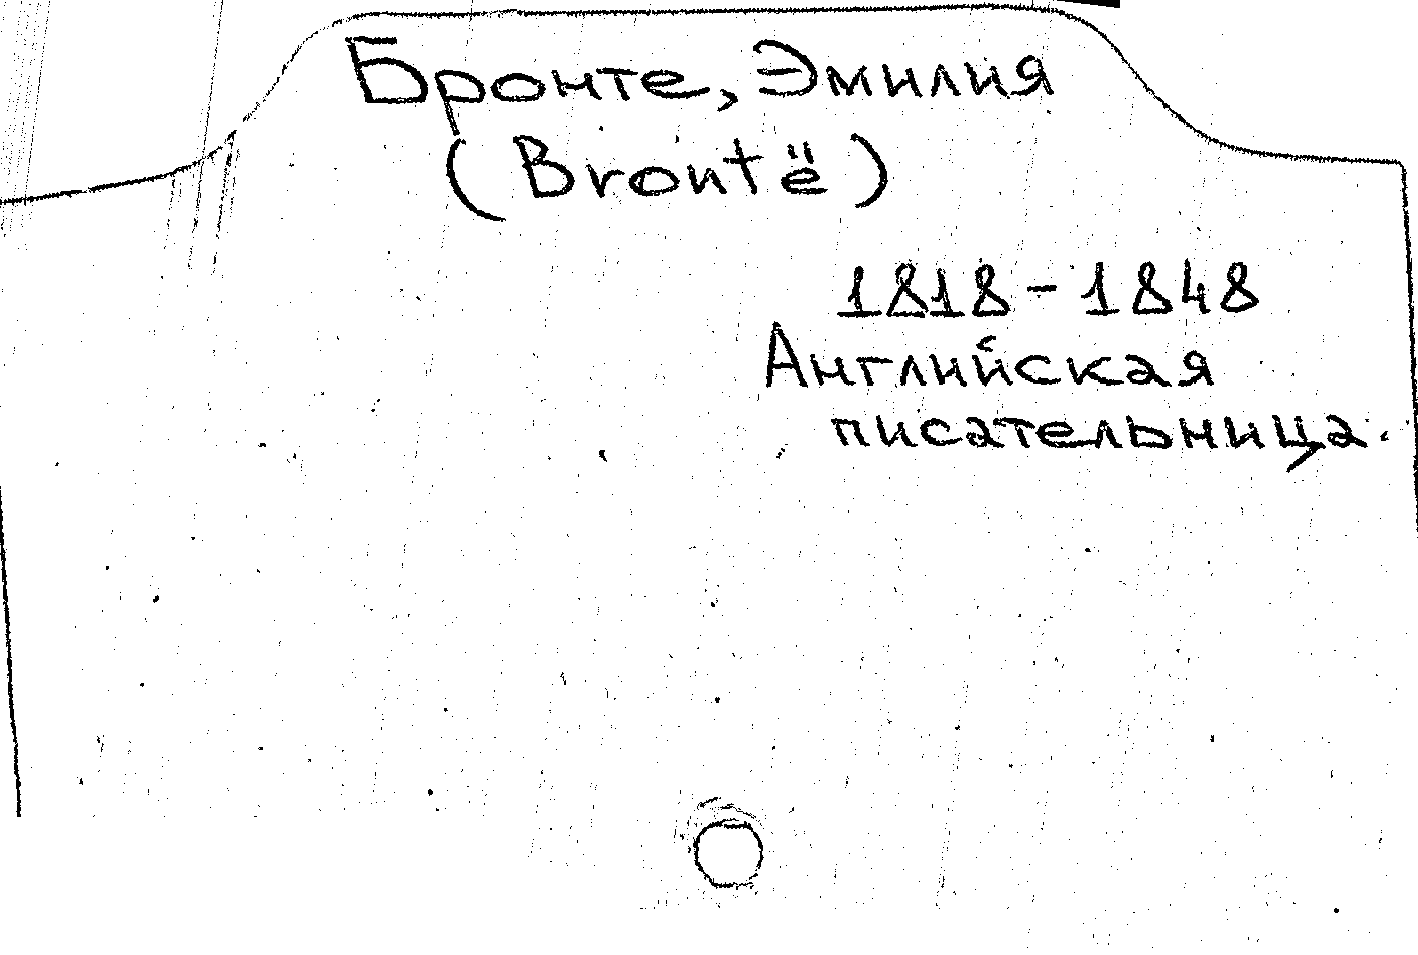 Бронте, Эмилия
(Brontë)
1818-1848
Английская
писательница.